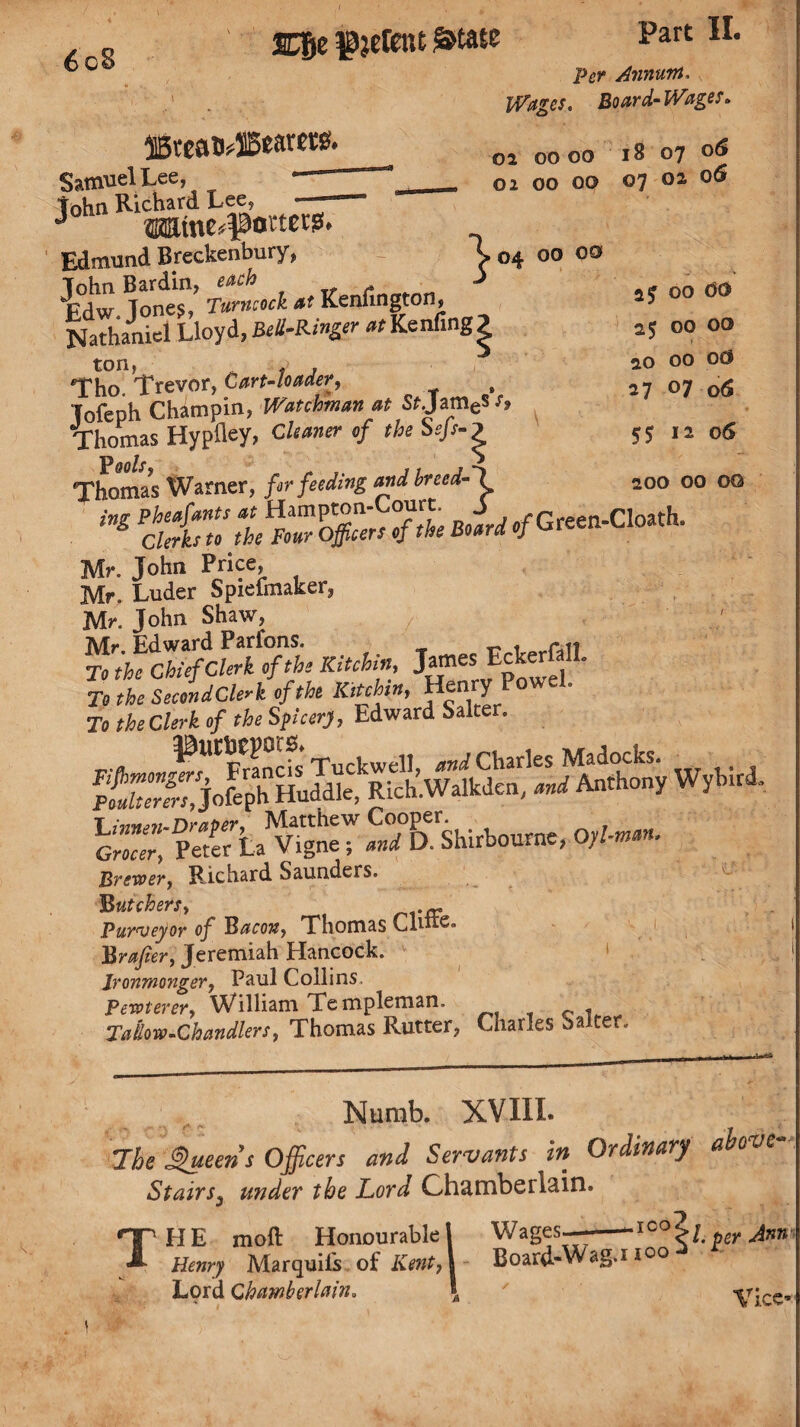 608 The Preſent State Part II.
Per Annum.
Wages. Board-Wages.
Bread-Bearers.
Samuel Lee, 02 00 00 18 07 06
John Richard Lee, 02 00 00 07 02 06
Maine-Porters.
Edmund Breckenbury,
John Bardin, each } 04 00 00
Edw. Jones, Turncock at Kenſington, 25 00 00
Nathaniel Lloyd, Bell-Ringer at Kenſing- 25 00 00
ton,
Tho. Trevor, Cart-loader, 20 00 00
Joſeph Champin, Watchman at St. James's, 27 07 06
Thomas Hypſley, Cleaner of the Seſs- 55 12 06
Pools,
Thomas Warner, for feeding and breed- 200 00 00
ing Pheaſants at Hampton-Court.
Clerks to the Four Officers of the Board of Green-Cloath.
Mr. John Price,
Mr. Luder Spieſmaker,
Mr. John Shaw,
Mr. Edward Parſons.
To the Chief Clerk of the Kitchin, James Eckerſall.
To the Second Clerk of the Kitchin, Henry Powel.
To the Clerk of the Spicery, Edward Salter.
Purveyors.
Fiſhmongers, Francis Tuckwell, and Charles Madocks.
Poulterers, Joſeph Huddle, Rich. Walkden, and Anthony Wybird.
Linnen-Draper, Matthew Cooper.
Grocer, Peter La Vigne; and D. Shirbourne, Oyl-man.
Brewer, Richard Saunders.
Butchers,
Purveyor of Bacon, Thomas Cliffe.
Braſier, Jeremiah Hancock.
Ironmonger, Paul Collins.
Pewterer, William Templeman.
Tallow-Chandlers, Thomas Rutter, Charles Salter.
Numb. XVIII.
The Queen's Officers and Servants in Ordinary above-
Stairs, under the Lord Chamberlain.
THE moſt Honourable Wages——100 } l. per Ann
Henry Marquiſs of Kent, Board-Wag. 1100
Lord Chamberlain.
Vice-